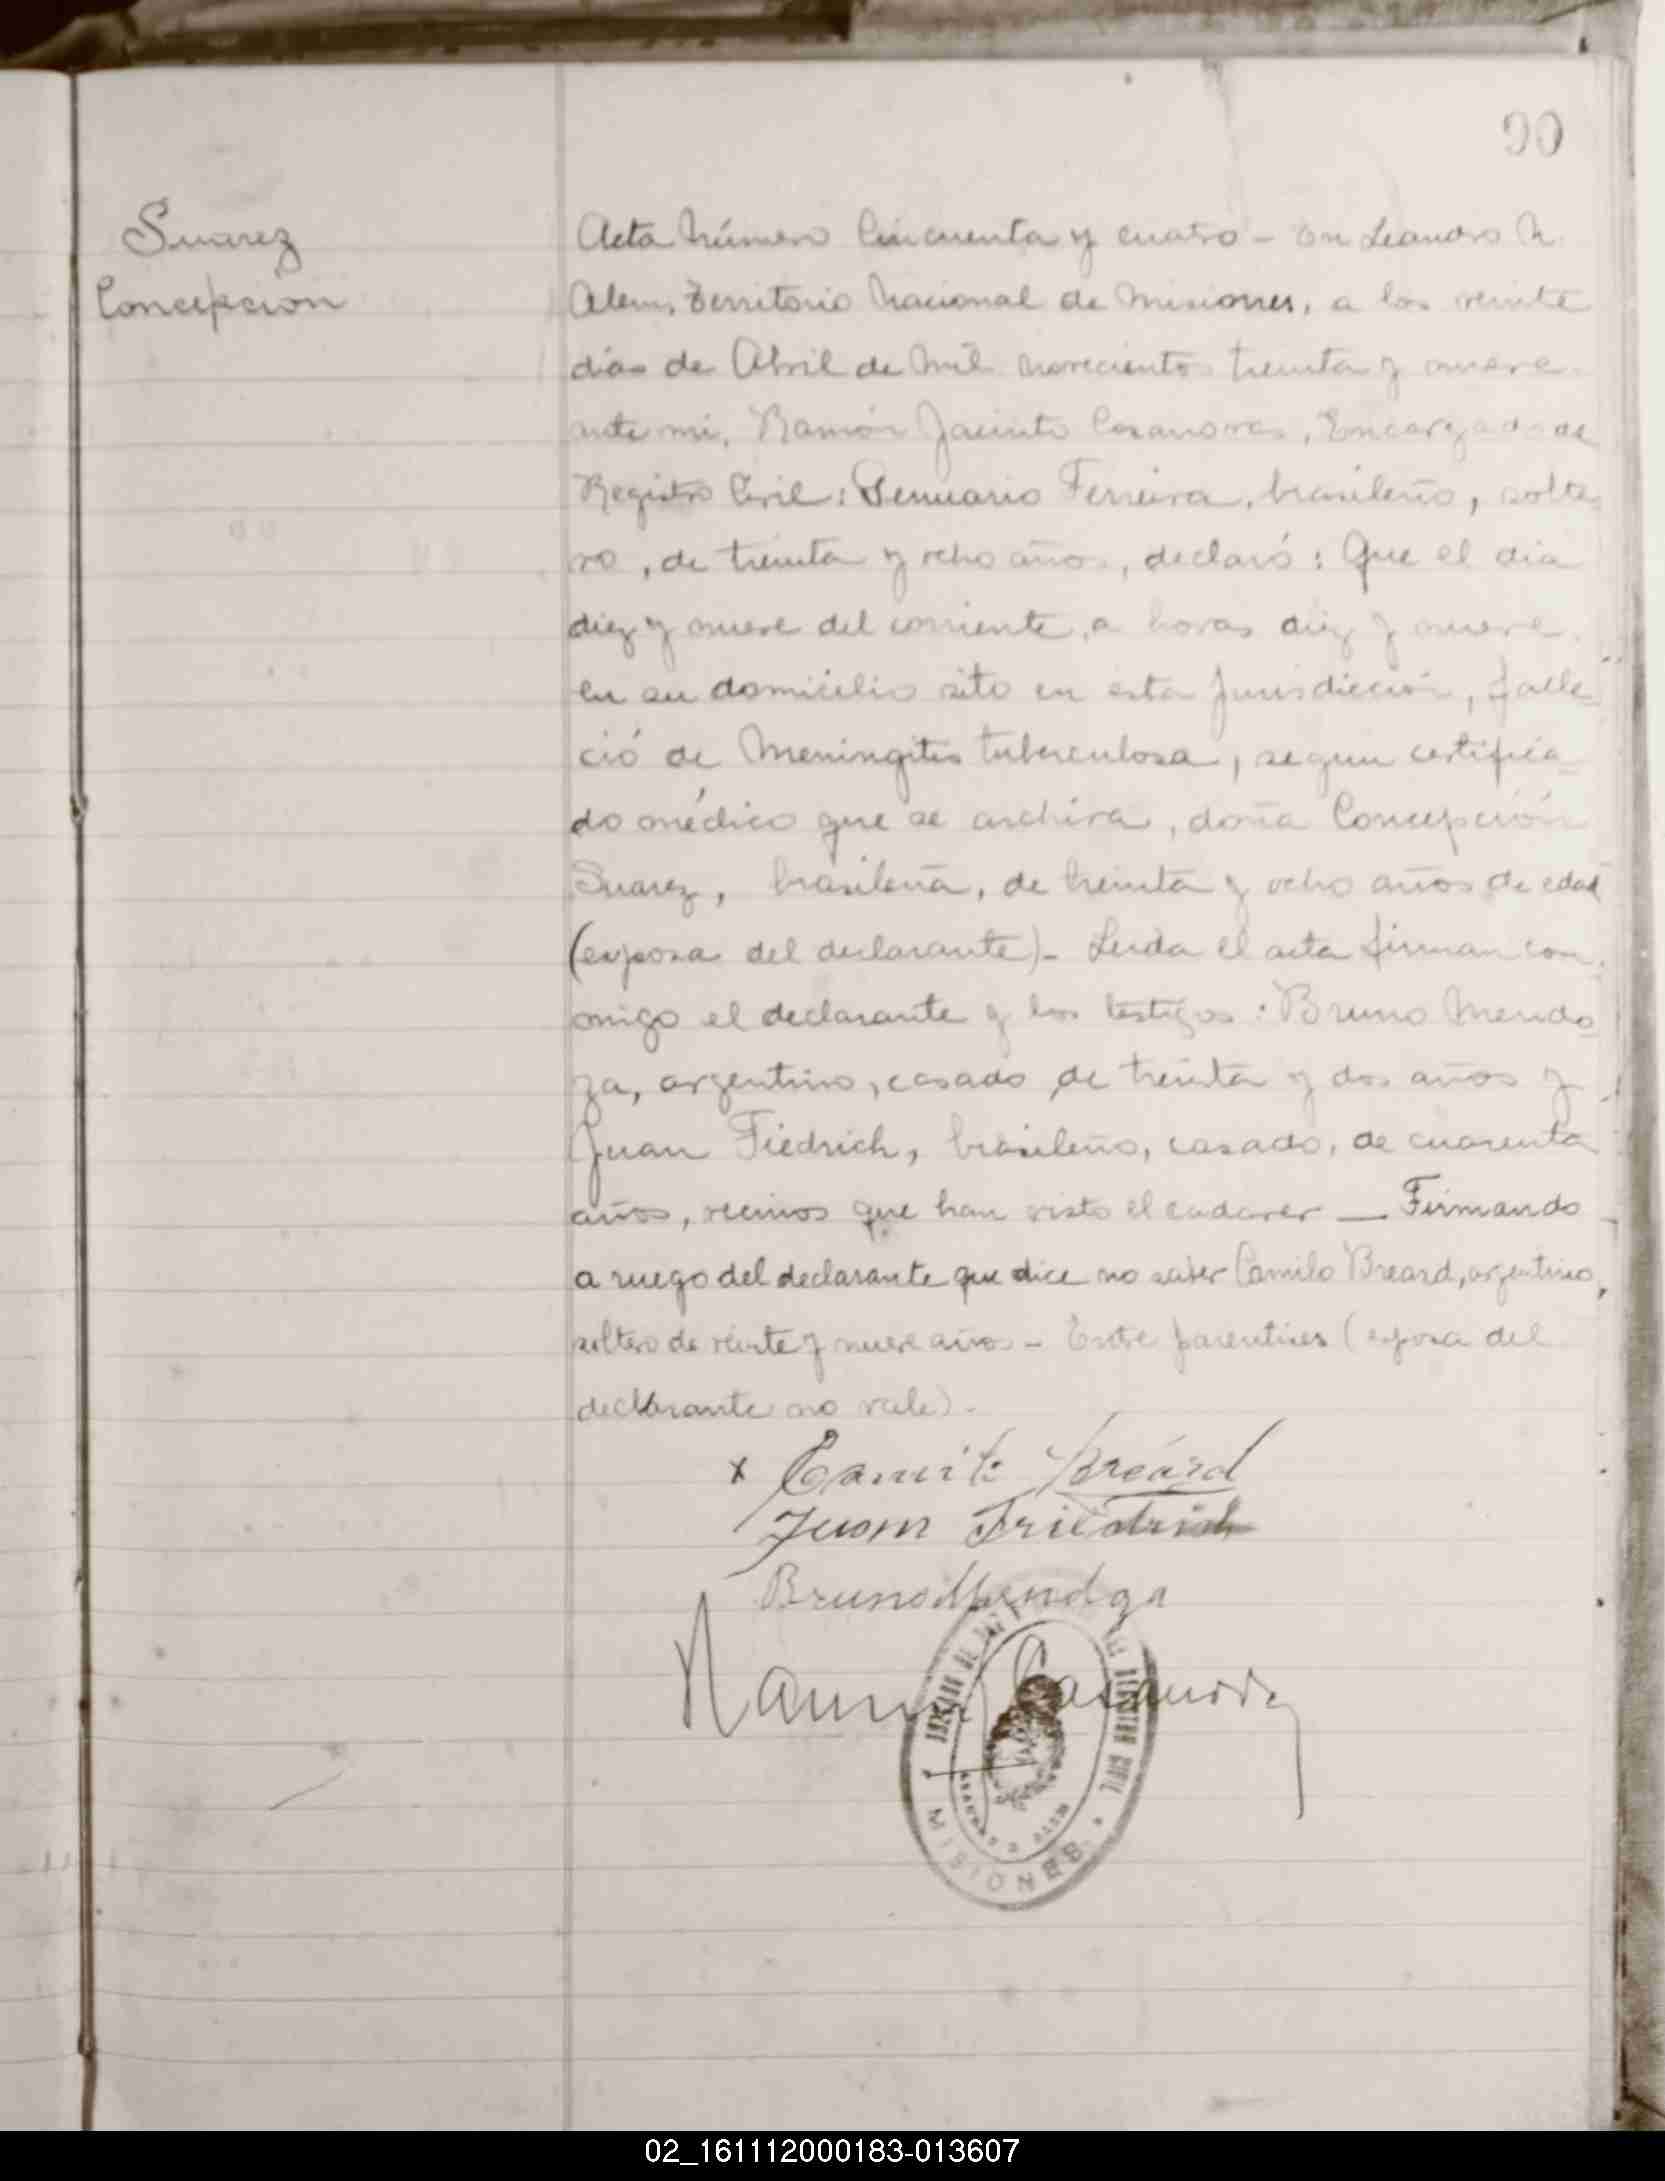 90
Suarez
Concepcion
Acta Número Cincuenta y cuatro - En Leandro N.
Alem, Territorio Nacional de Misiones, a los veinte
días de Abril de Mil novecientos treinta y nueve
ante mi, Ramón Jacinto Casanovas, Encargado de
Registro Civil: Genuario Ferreira, brasileño, solte-
ro, de treinta y ocho años, declaró: Que el dia
diez y nueve del corriente, a horas diez y nueve
en su domicilio sito en esta jurisdicción, falle-
ció de Meningitis tuberculosa, segun certifica-
do médico que se archiva, doña Concepción
Suarez, brasileña, de treinta y ocho años de edad
(esposa del declarante)- Leida el acta firman con-
migo el declarante y los testigos: Bruno Mendo-
za, argentino, casado de treinta y dos años y
Juan Fiedrich, brasileño, casado, de cuarenta
años, vecinos que han visto el cadaver — Firmando
a ruego del declarante que dice no saber Camilo Breard, argentino,
soltero de veinte y nueve años - Entre parentises (esposa del
declarante no vale).-
x Camilo Breárd
Juan Friedrich
Bruno Mendoza
Ramon Casanovas
REGISTRO CIVIL
MISIONES
02_161112000183-013607